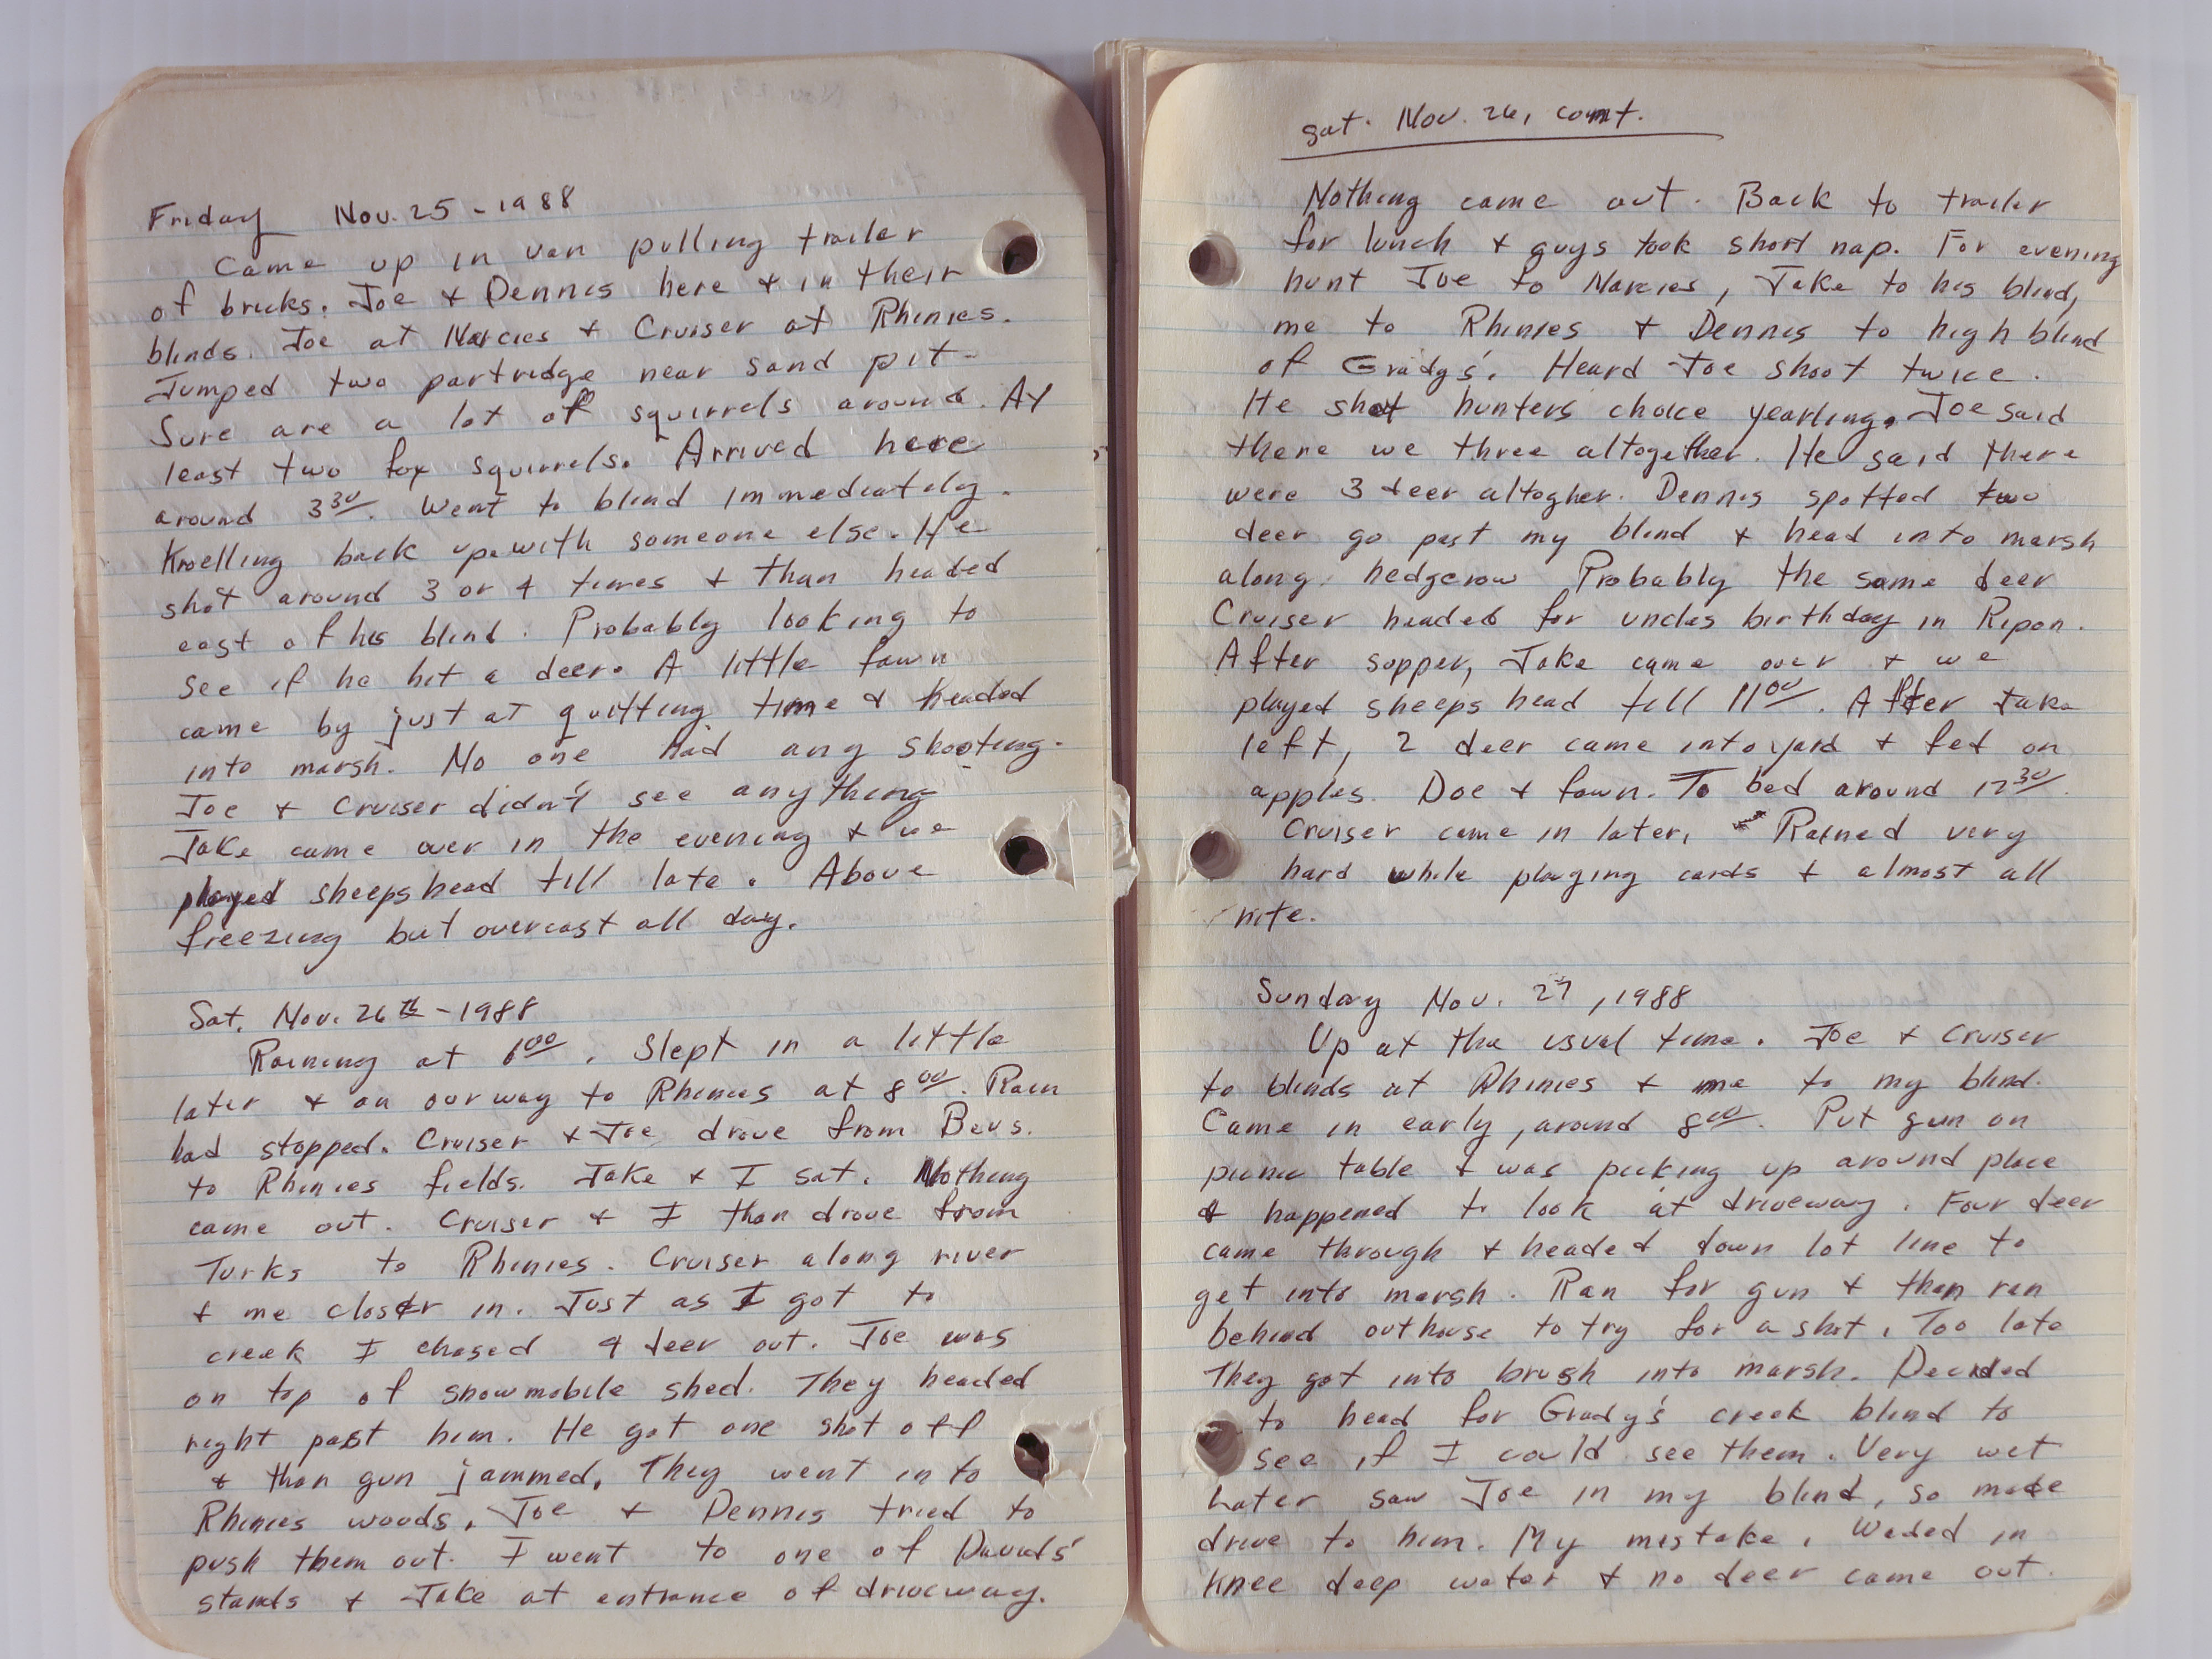 Friday Nov. 25 - 1988
Came up in van pulling trailer
of bricks. Joe & Dennis here & in their
blinds. Joe at Narcies & Cruiser at Rhinies.
Jumped two partridge near sand pit.
Sure are a lot of squirrels around. At
least two fox squirrels. Arrived here
around 3 30. Went to blind immediately.
Knoelling back up with someone else. He
shot around 3 or 4 times & than headed
east of his blind. Probably looking to
see if he hit a deer. A little fawn
came by just at quitting time & headed
into marsh. No one had any shooting.
Joe & Cruiser didn't see anything
Jake came over in the evening & we
played sheepshead till late. Above
freezing but overcast all day.
Sat. Nov. 26th - 1988
Raining at 6 00. Slept in a little
later & on our way to Rhinies at 8 00. Rain
had stopped. Cruiser & Joe drove from Bevs.
to Rhinies fields. Jake & I sat. Nothing
came out. Cruiser & I than drove from
Turks to Rhinies. Cruiser along river
& me closer in. Just as I got to
creek I chased 4 deer out. Joe was
on top of snowmobile shed. They headed
right past him. He got one shot off
& than gun jammed. They went into
Rhinies woods. Joe & Dennis tried to
push them out. I went to one of Davids'
stands & Jake at entrance of driveway.
Sat. Nov. 26, comt.
Nothing came out. Back to trailer
for lunch & guys took short nap. For evening
hunt Joe to Narcies, Jake to his blind,
me to Rhinies & Dennis to high blind
of Grady's. Heard Joe shoot twice.
He shot hunters choice yearling. Joe said
there we three altogether. He said there
were 3 deer altogher. Dennis spotted two
deer go past my blind & head into marsh
along hedgerow Probably the same deer
Cruiser headed for uncles birthday in Ripon.
After supper, Jake came over & we
played sheeps head till 11 00. After Jake
left, 2 deer came into yard & fed on
apples. Doe & fawn. To bed around 12 30.
Cruiser came in later. Rained very
hard while playing cards & almost all
nite.
Sunday Nov. 27, 1988
Up at the usual time. Joe & Cruiser
to blinds at Rhinies & me to my blind.
Came in early, around 8 00. Put gun on
picnic table & was picking up around place
& happened to look at driveway. Four deer
came through & headed down lot line to
get into marsh. Ran for gun & than ran
behind outhouse to try for a shot. Too late
They got into brush into marsh. Decided
to head for Grady's creek blind to
see if I could see them. Very wet
Later saw Joe in my blind, so made
drive to him. My mistake. Waded in
knee deep water & no deer came out.